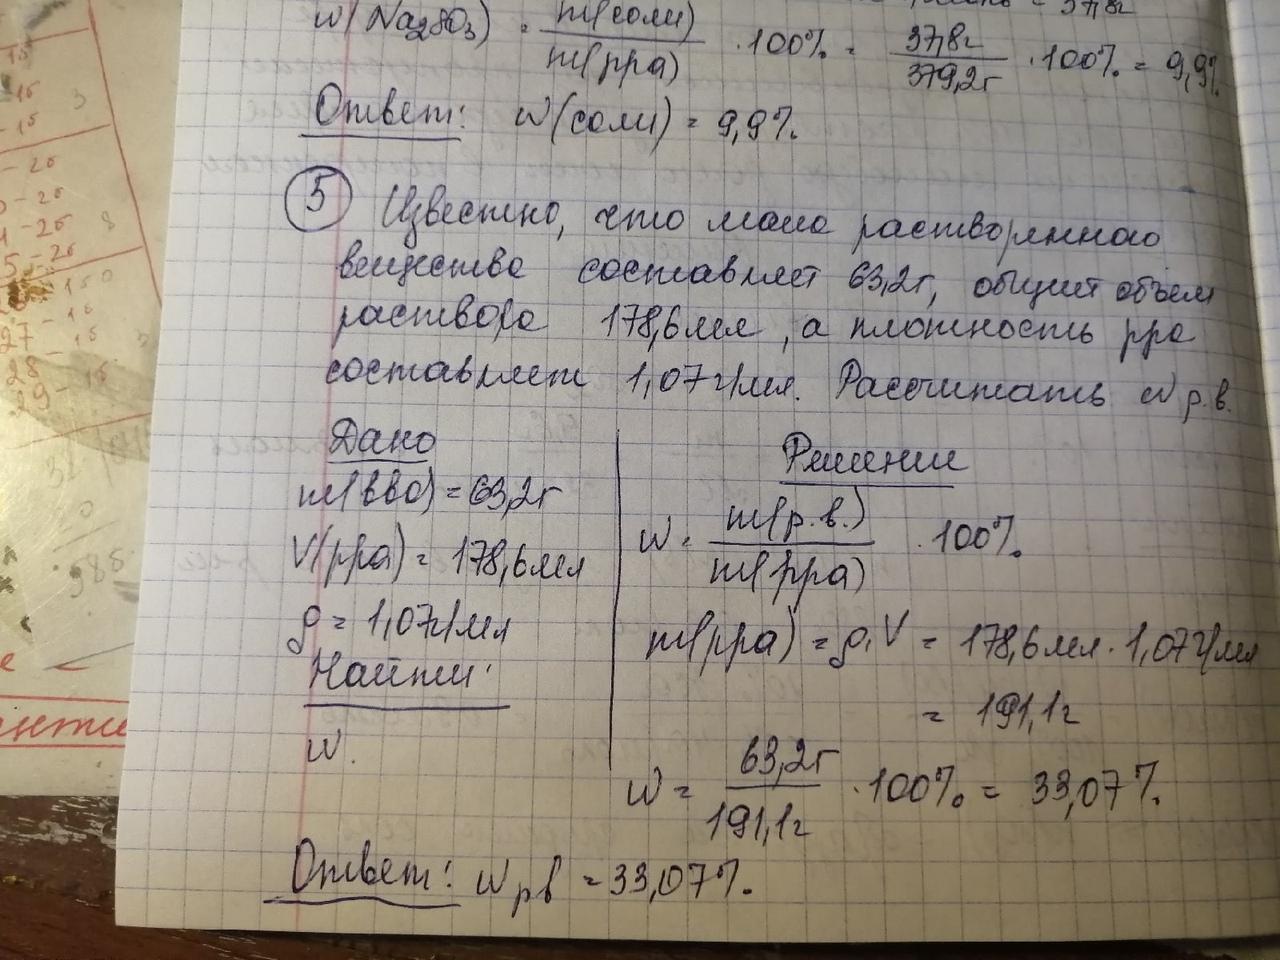 w(Na2SO3) = m(соли) / m(рра) · 100% = 37,8г / 379,2г · 100% = 9,9%
Ответ: w(соли) = 9,9%.
5 Известно, что маса растворенного
вещества составляет 63,2г, общий объём
раствора 178,6мл, а плотность рра
составляет 1,07г/мл. Рассчитать w р.в.
Дано
m(вва) = 63,2г
V(рра) = 178,6мл
ρ = 1,07г/мл
Найти:
w.
Решение
w = m(р.в.) / m(рра) · 100%.
m(рра) = ρ·V = 178,6мл · 1,07г/мл
= 191,1г
w = 63,2г / 191,1г · 100% = 33,07%.
Ответ: w рв = 33,07%.